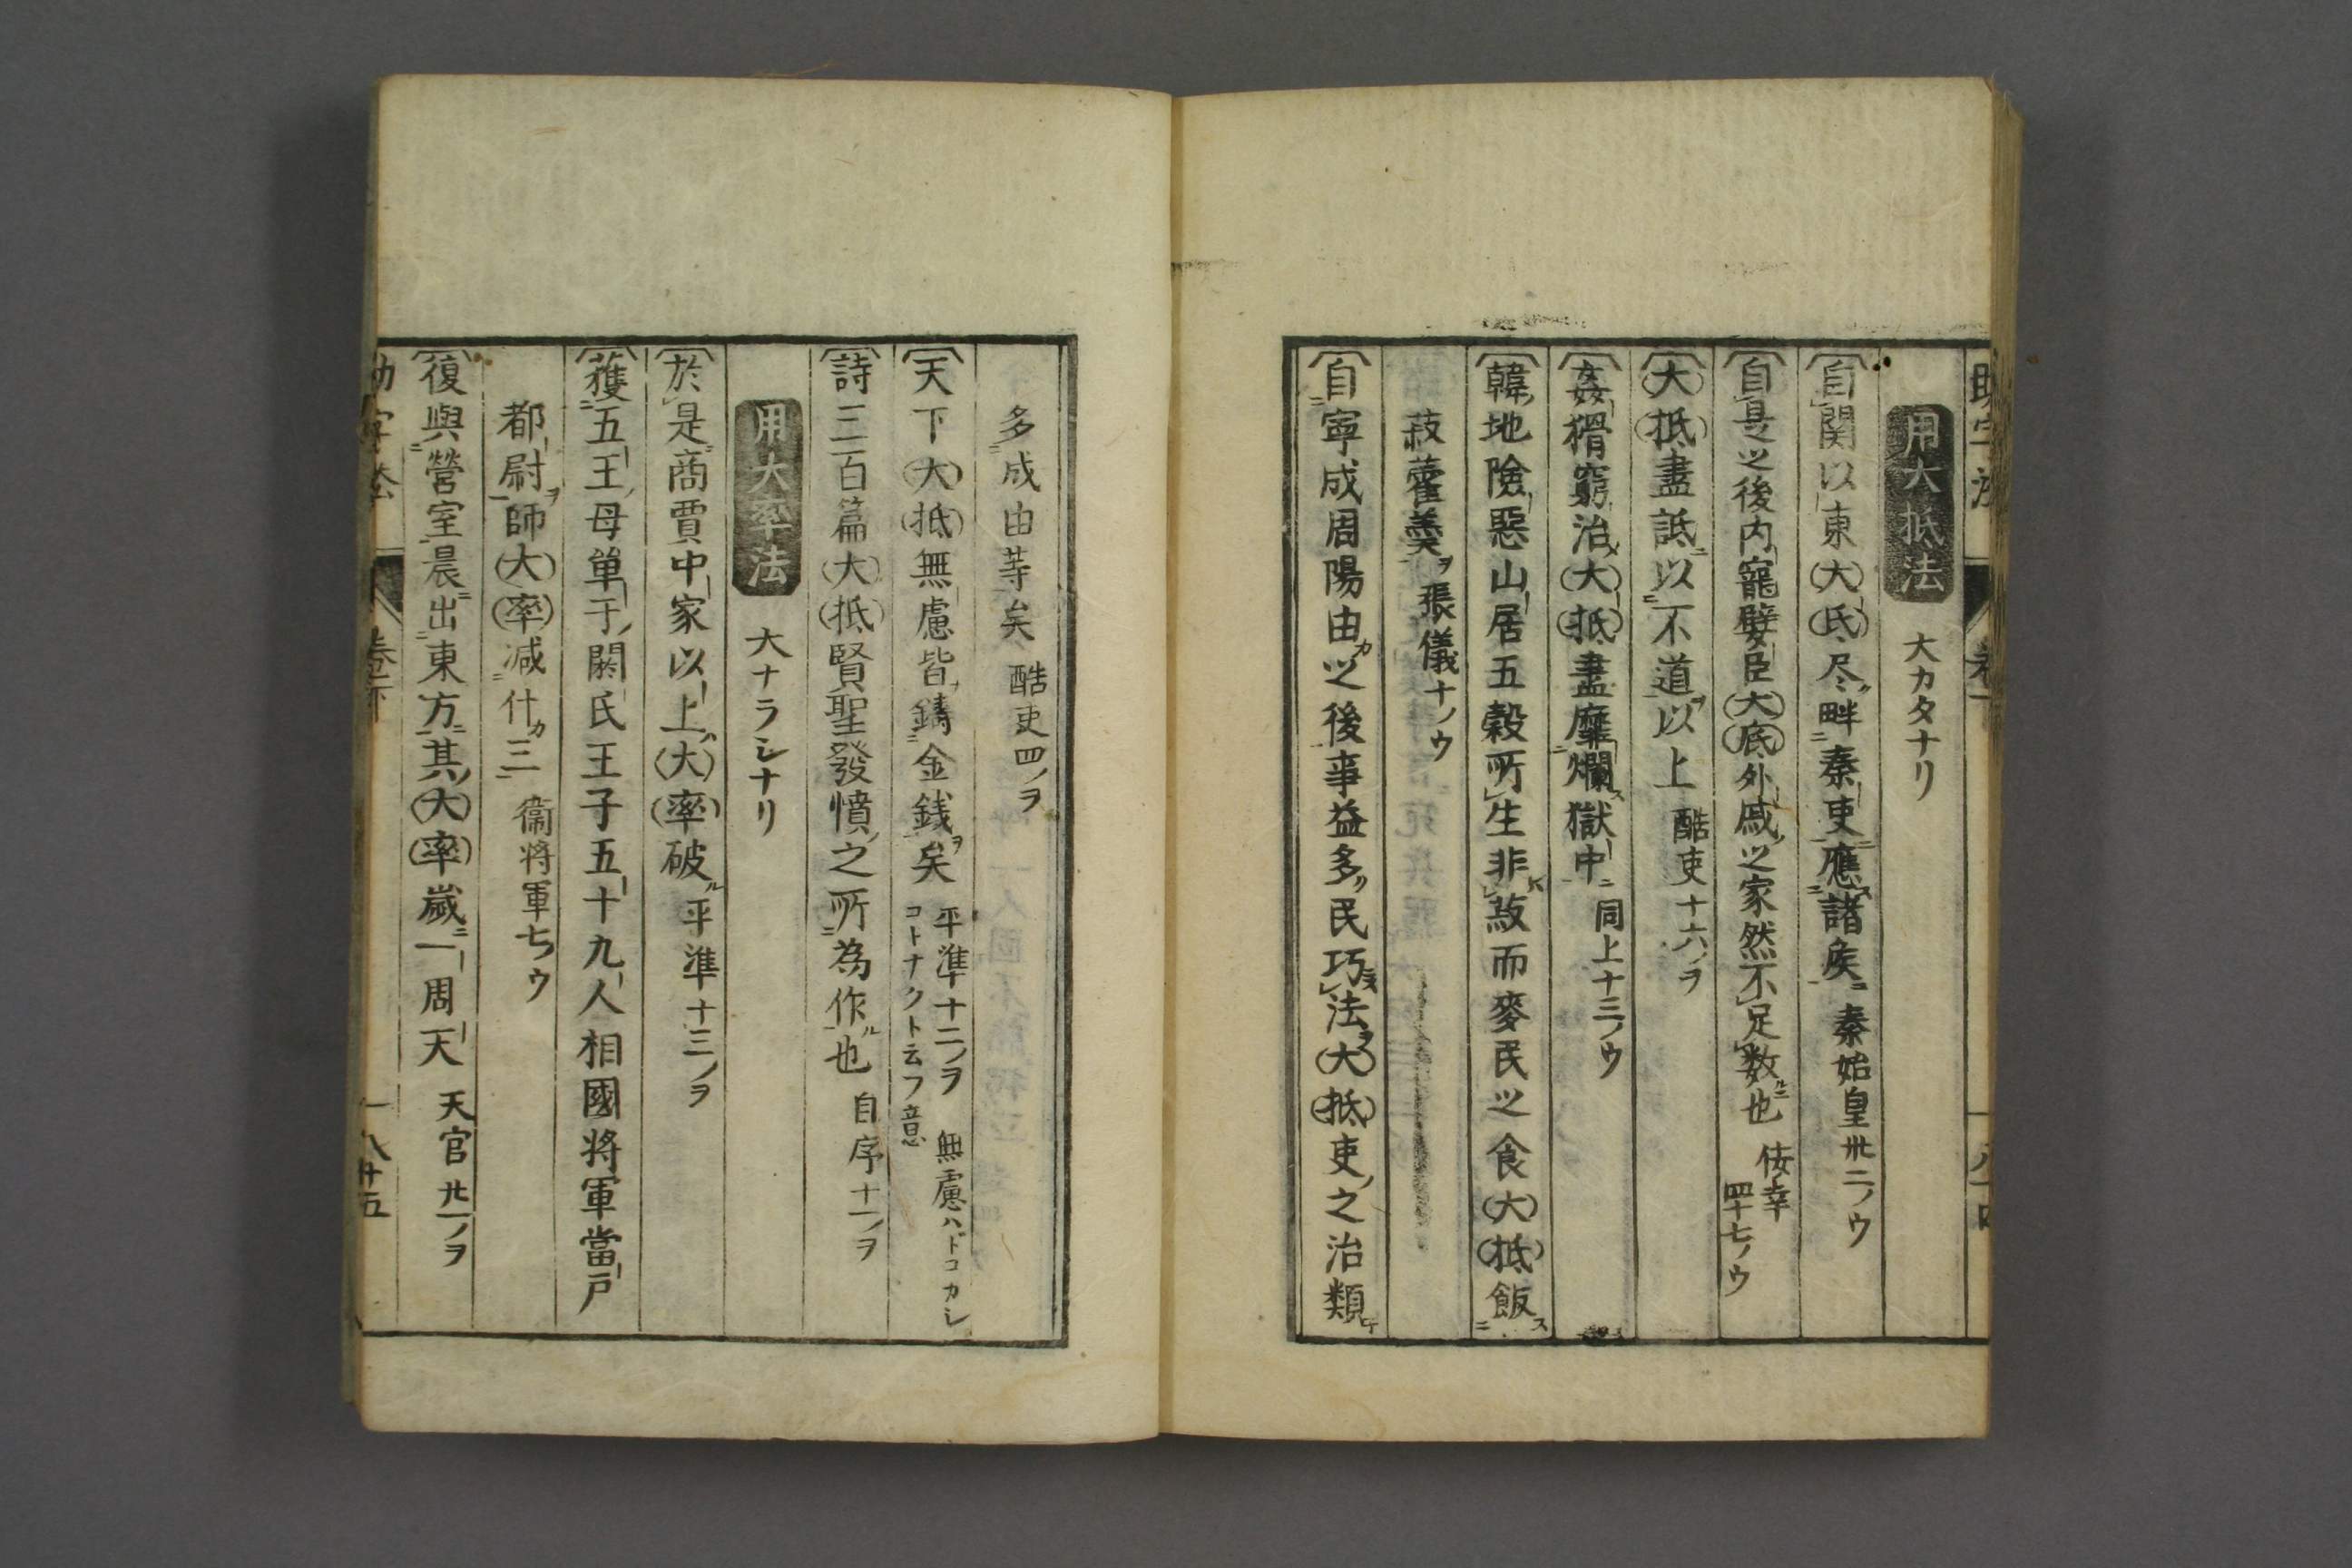 用大抵法 大カタナリ
自関以東大氐尽畔秦吏應諸矦 秦始皇卅二ノウ
自是之後内寵嬖臣大底外戚之家然不足数也 佞幸四十七ノウ
大抵盡詆以不道以上 酷吏十六ノヲ
姦猾窮治大抵盡靡爛獄中 同上十三ノウ
韓地險惡山居五穀所生非菽而麥民之食大抵飯
菽藿羹 張儀十ノウ
自寧成周陽由之後事益多民巧法大抵吏之治類
多成由等矣 酷吏四ノヲ
天下大抵無慮皆鋳金銭矣 平準十二ノヲ 無慮ハドコカシ
コトナクト云フ意
詩三百篇大抵賢聖發憤之所為作也 自序十一ノヲ
用大率法 大ナラシナリ
於是商賈中家以上大率破 平準十三ノヲ
獲五王王母単于閼氏王子五十九人相國将軍當戸
都尉師大率減什三 衞将軍七ウ
復與營室晨出東方其大率歳一周天 天官廿一ノヲ
助字法 卷下 八十五